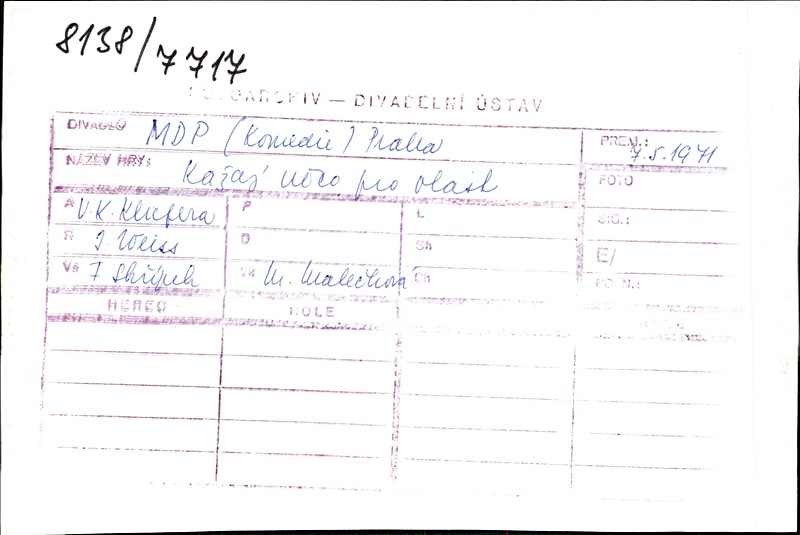 8138/7717
FOTOARCHIV — DIVADELNÍ ÚSTAV
DIVADLO MDP (Komedie) Praha PREM.: 7.5.1971
NÁZEV HRY: Každý něco pro vlast FOTO
A V.K. Klicpera P L SIG.:
R J Weiss D Sh E/
Vs F Skřípek Vk M. Malečková Ch PO N.:
HEREC ROLE